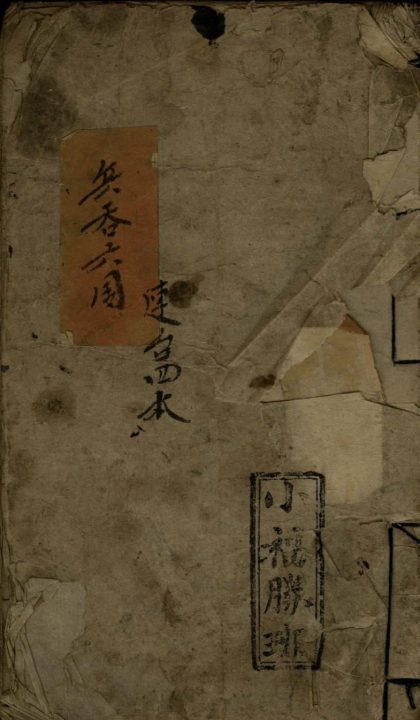 兵吞六国
連台四本
小福勝班